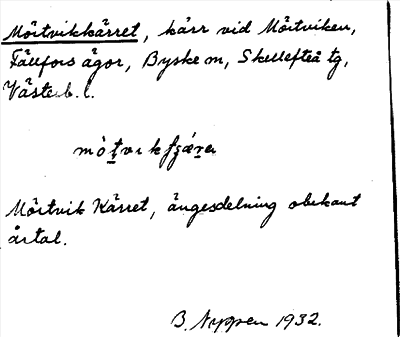 Mörtvikkärret, kärr vid Mörtviken,
Fällfors ägor, Byske sn, Skellefteå tg,
Västerb. l.
Mörtvik Kärret, ängesdelning obekant
årtal.
B. Nyppen 1932.